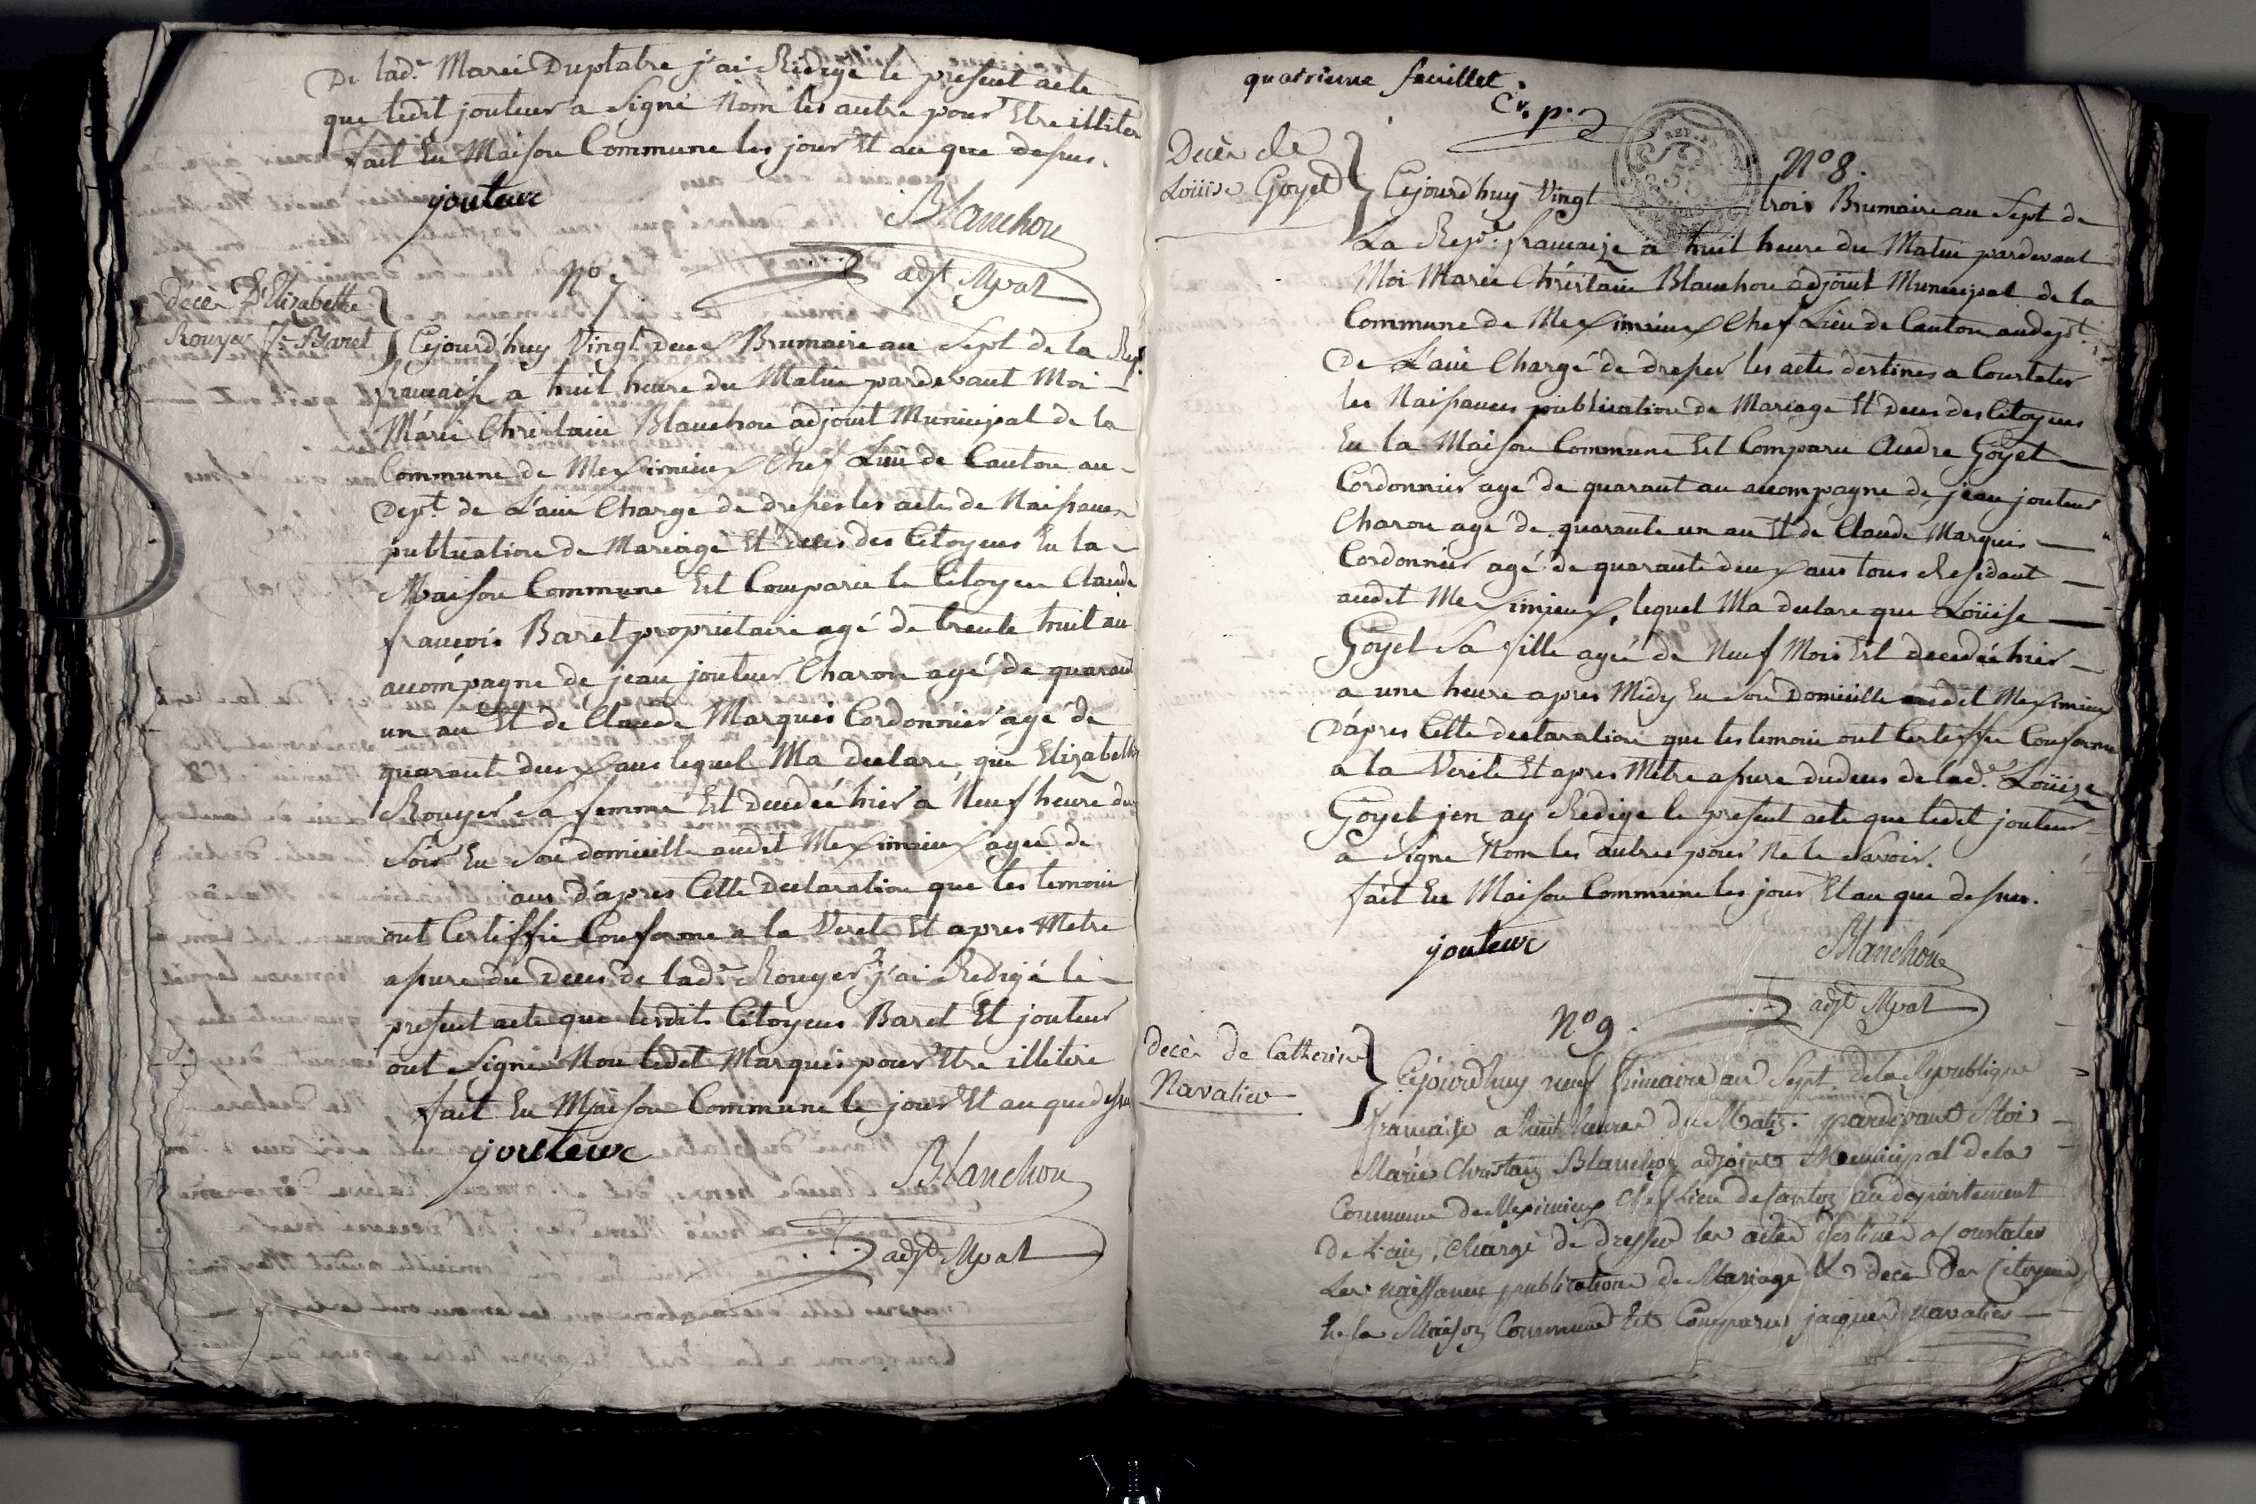 De lad.e Marie Duplatre j'ai Redigé le present acte
que ledit jouteur a Signé Nom les autre pour Etre illiter
fait En Maison Commune les jour Et an que dessus.
jouteur
Blanchon
adjt Mpal
No 7
Decès D'Elizabette
Rouyer f.e Baret
Cejourd'huy Vingt deux Brumaire an Sept de la Rep.
francaise a huit heure du Matin pardevant Moi
Marie Christain Blanchon adjoint Municipal de la
Commune de Meximieux Chef Lieu de Canton au
Dept de L'ain Chargé de dresser les acte de Naissance
publication de Mariage Et deces des Citoyens En la
Maison Commune Est Comparu le Citoyen Claude
francois Baret proprietaire agé de trente huit an
accompagne de jean jouteur Charon agé de quarant
un an Et de Claude Marquis Cordonnier agé de
quarante deux ans lequel Ma declare que Elizabette
Rouyer Sa femme Est decedée hier a Neuf heure du
Soir En Son domicille audit Meximieux agée de
ans d'apres Cette declaration que les temoin
ont Certiffié Conforme a la Verite Et apres Metre
assure du deces de lad.e Rouyer j'ai Redigé le
present acte que lesdits Citoyens Baret Et jouteur
ont Signé Non ledit Marquis pour Etre illitere
fait En Maison Commune le jour Et an que dessus
jouteur
Blanchon
adjt Mpal
quatrieme feuillet.
C.. p.
REP.
No 8.
Decès de
Loüise Goyet
Cejourd'huy Vingt trois Brumaire an Sept de
La Rep.e francaize a huit heure du Matin pardevant
Moi Marie Christain Blanchon adjoint Municipal de la
Commune de Meximieux Chef Lieu de Canton au dept.
De L'ain Chargé de dresser les acte destines a Constater
les Naissances publication de Mariage Et deces des Citoyens
En la Maison Commune Est Comparu Andre Goyet
Cordonnier agé de quarant an accompagne de jean jouteur
Charon agé de quarante un an Et de Claude Marquis
Cordonnier agé de quarante deux ans tous Residant
audit Meximieux, lequel Ma declare que Loüise
Goyet Sa fille agée de Neuf Mois Est decedée hier
a une heure apres Midy En Son Domicille audit Meximieux
D'apres Cette declaration que les temoin ont Certiffié Conforme
a la Verite Et apres Metre assure du deces de lad.e Loüize
Goyet jen ay Redigé le present acte que ledit jouteur
a Signe Nom les autres pour Ne le Savoir.
fait En Maison Commune les jour Et an que dessus.
jouteur
Blanchon
adjt Mpal
No 9.
decès de Catherine
Navalier
Cejourd'huy neuf frimaire an Sept. de la Republique
francaise a huit heures du Matin pardevant Moi
Marie Christain Blanchon adjoint Municipal de la
Commune de Meximieux Chef Lieu de Canton au departement
De L'ain, Chargé de dresser les actes destinés a Constater
Les naissances publications de Mariage & decès des Citoyens
En la Maison Commune Est Comparu jacques Navalier